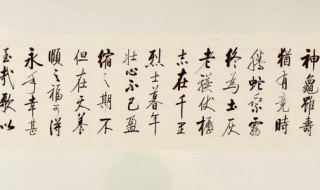 神龜雖壽
猶有竟時
騰蛇乘霧
終為土灰
老驥伏櫪
志在千里
烈士暮年
壯心不已盈
縮之期不
但在天養
頤之福可得
永年幸甚
至哉歌以